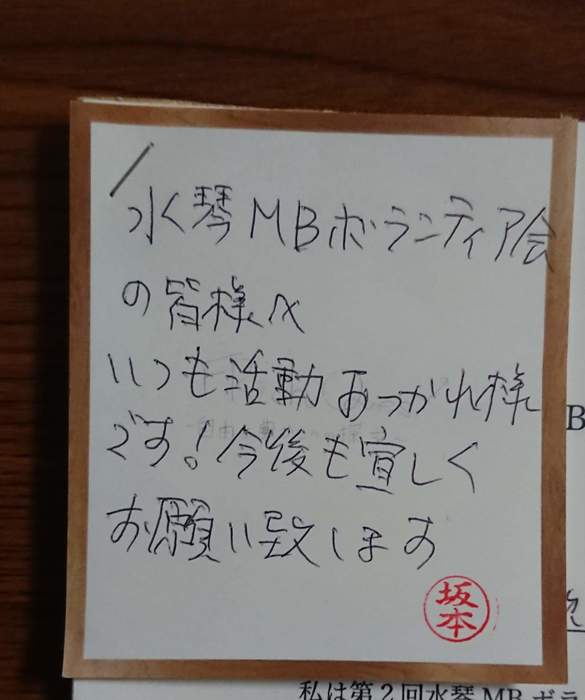 水琴MBボランティア会
の皆様へ
いつも活動おつかれ様
です!今後も宜しく
お願い致します
坂本
B
私は第2回水琴MBボラ